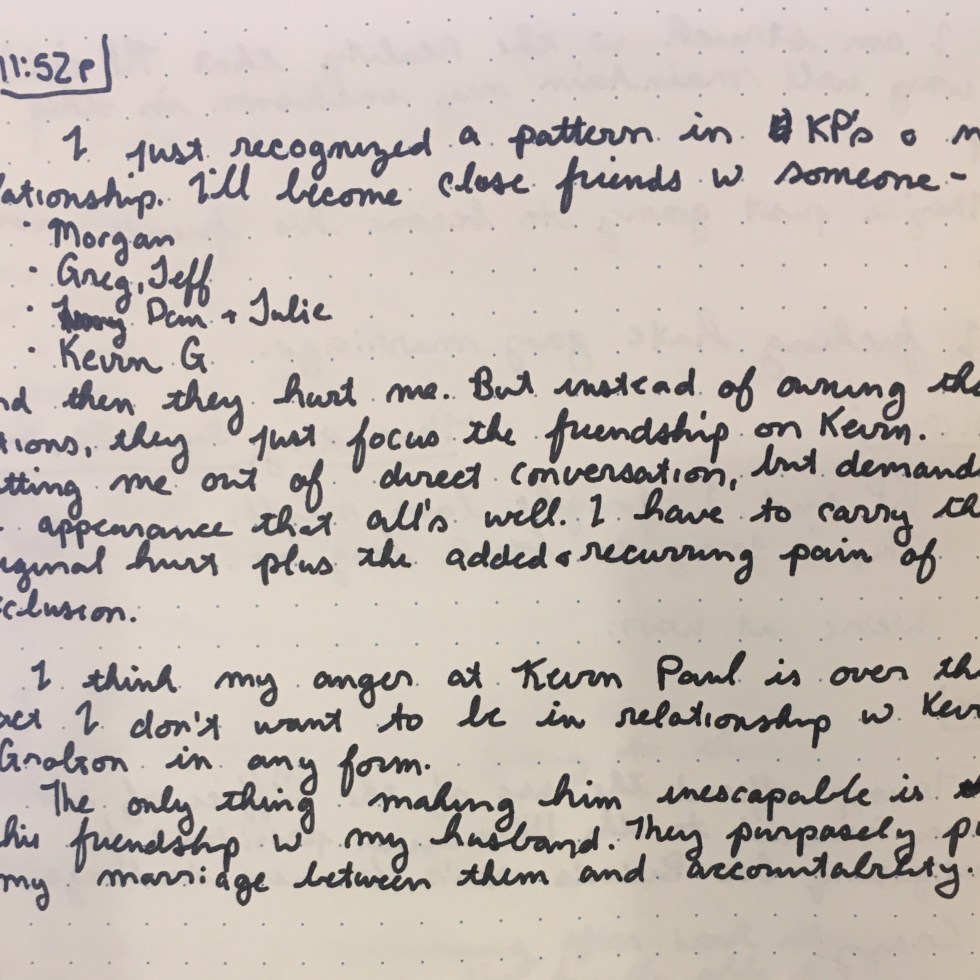 11:52p
I just recognized a pattern in KP's & m
lationship. I'll become close friends w someone -
• Morgan
• Greg, Jeff
• Dan + Julie
• Kevin G
nd then they hurt me. But instead of owning the
tions, they just focus the friendship on Kevin.
tting me out of direct conversation, but demand
appearance that all's well. I have to carry th
iginal hurt plus the added & recurring pain of
clusion.
I think my anger at Kevin Paul is over th
act I don't want to be in relationship w Kev
in any form.
The only thing making him inescapable is
his friendship w my husband. They purposely p
my marriage between them and accountability.